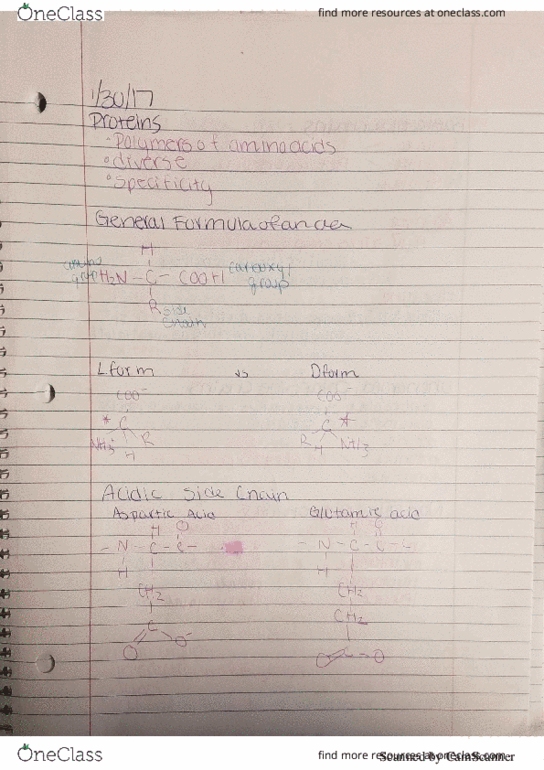 OneClass find more resources at oneclass.com
1/30/17
Proteins
• Polymers of amino acids
• diverse
• Specificity
General Formula of an aa
H
amino group H₂N – C – COOH carboxyl group
R side chain
L form vs D form
COO⁻ COO⁻
* C C *
NH3 R R NH3
H H
Acidic Side Chain
Aspartic Acid Glutamic acid
H O H O
- N - C - C - - N - C - C -
H H
CH2 CH2
C CH2
O O⁻ C O
OneClass find more resources at oneclass.com
Scanned by CamScanner